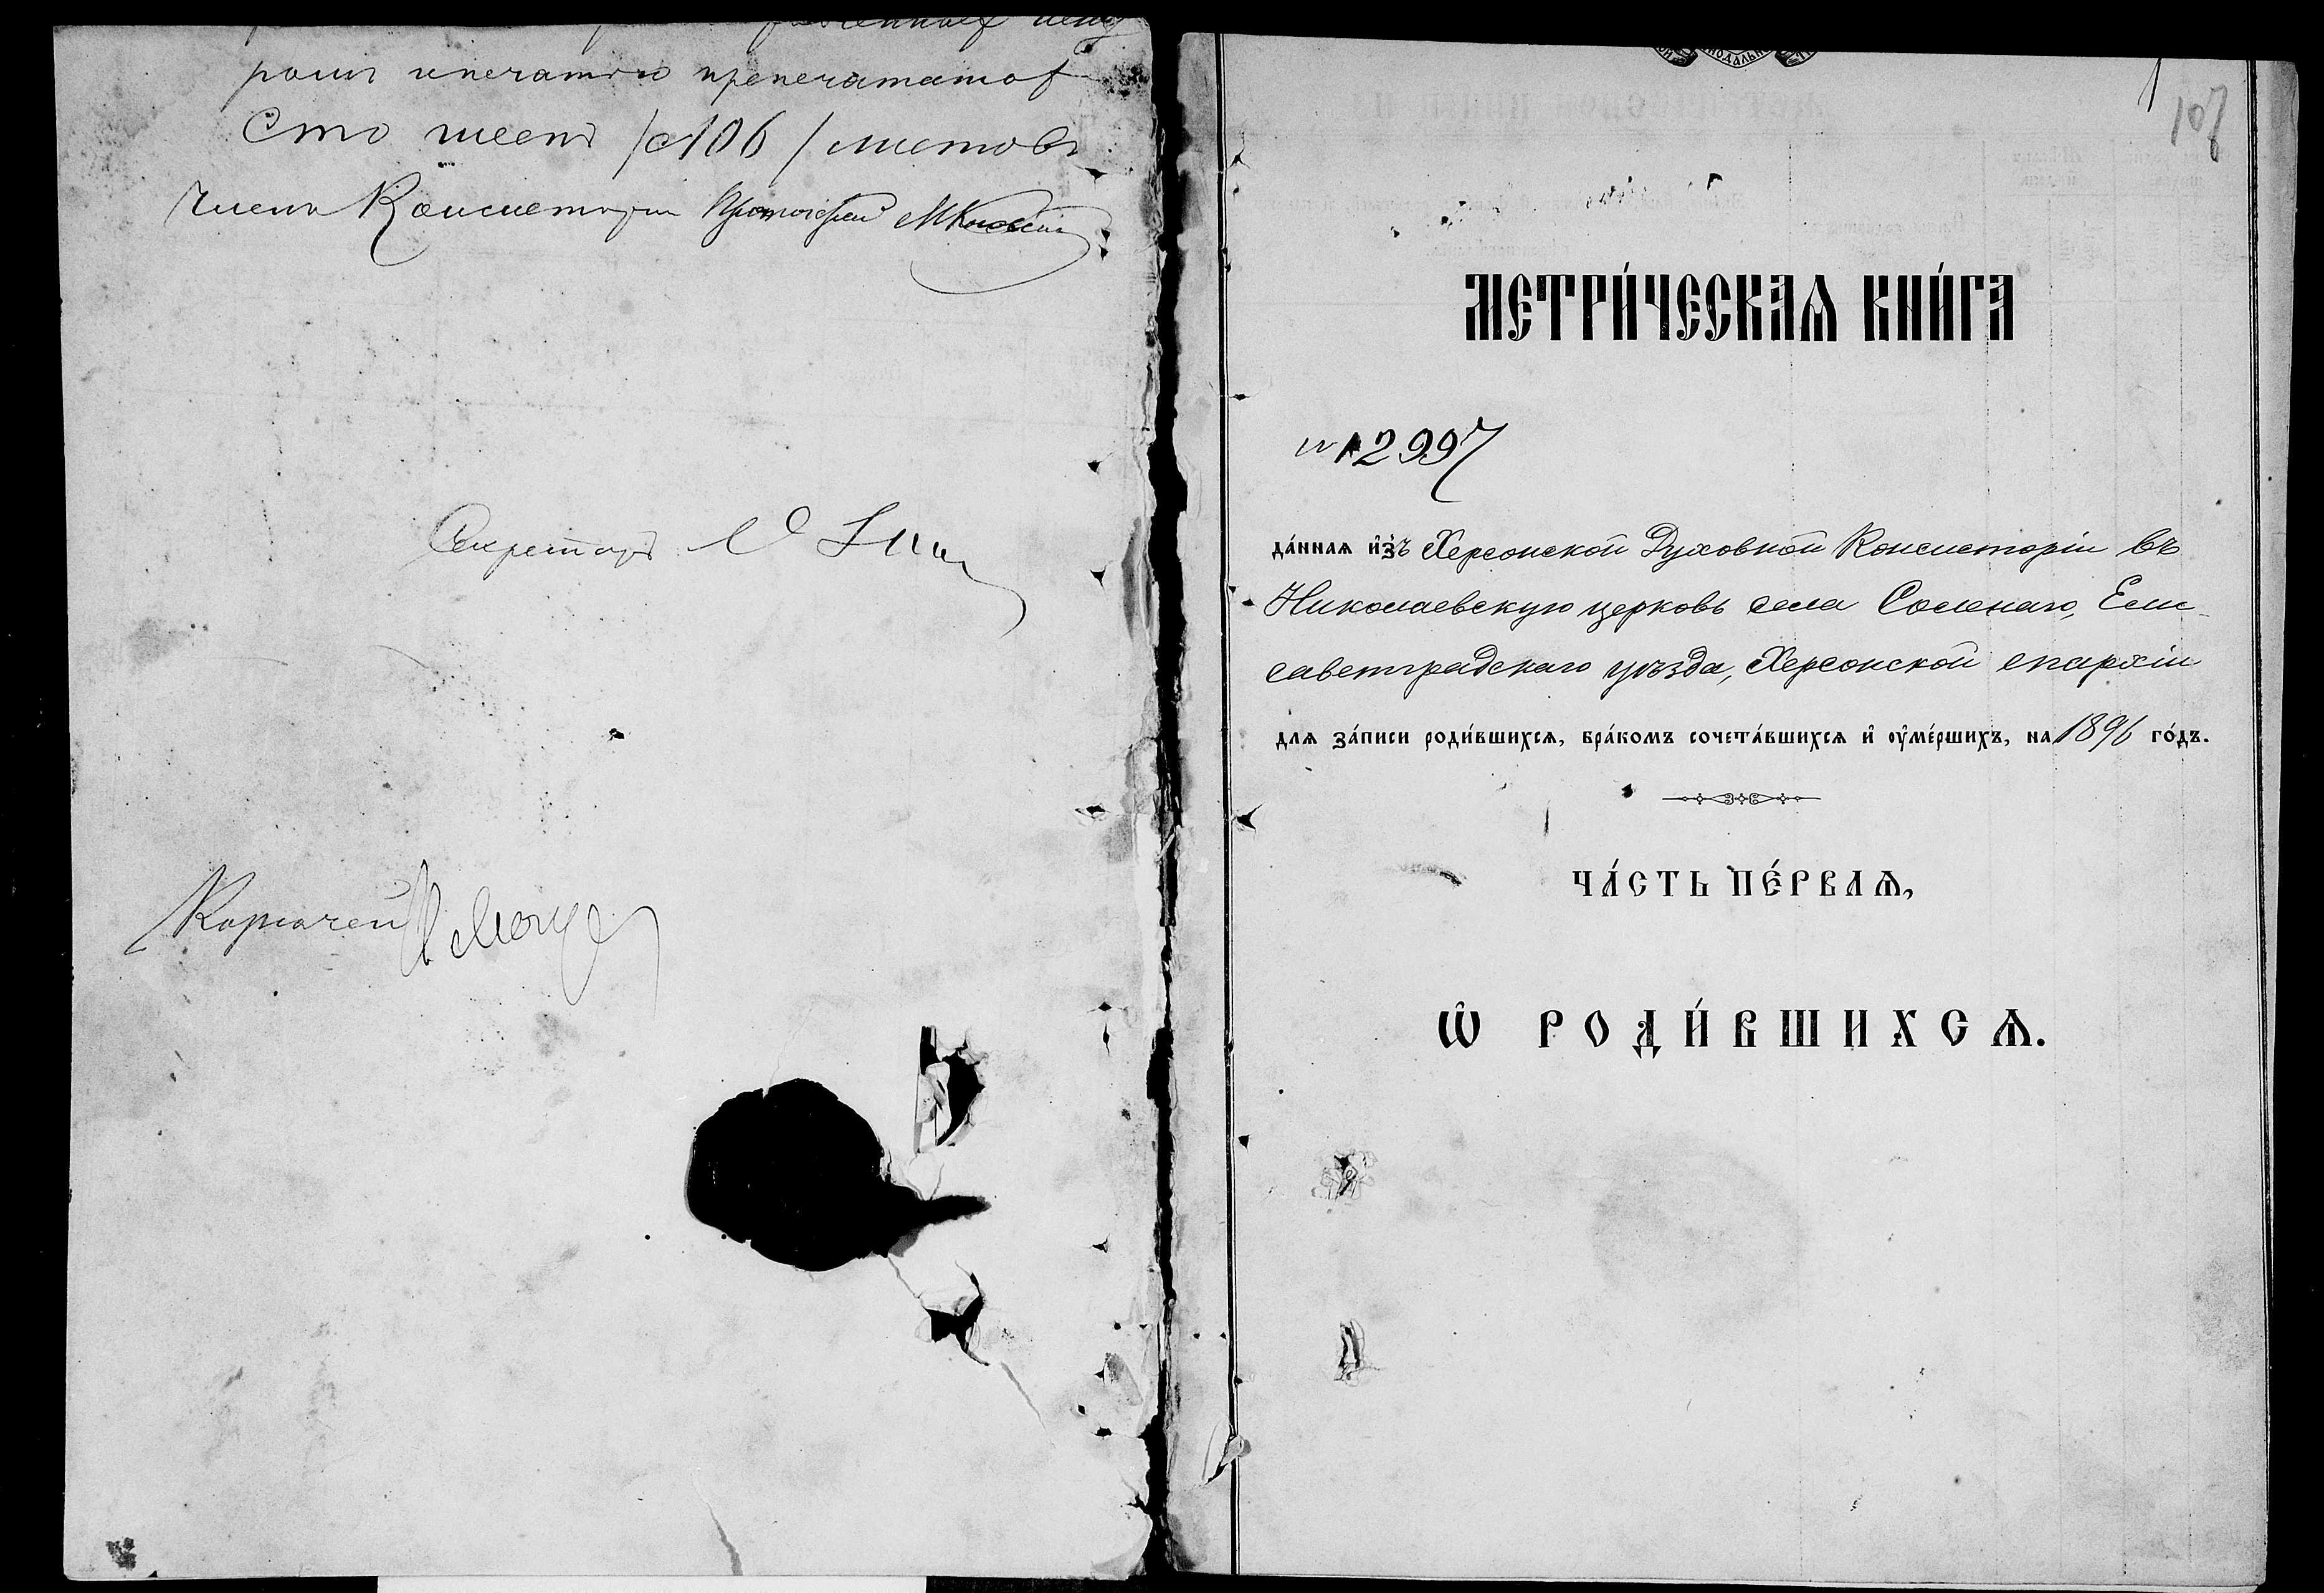 Сто шесть /с106/ листовъ
Членъ Консисторіи Протоіерей
Секретарь
Казначей
1
107
МЕТРИ́ЧЕСКАѦ КНИ́ГА
№ 12997
да́ннаѧ и҆зъ Херсонской Духовной Консисторіи въ
Николаевскую церковь села Соленаго, Ели-
саветградскаго уѣзда, Херсонской епархіи
для за́писи роди́вшихсѧ, бра́комъ сочета́вшихсѧ и҆ ᲂу҆ме́ршихъ, на 1896 го́дъ.
ЧА́СТЬ ПЕ́РВАѦ,
Ѡ҆ РОДИ́ВШИХСѦ.